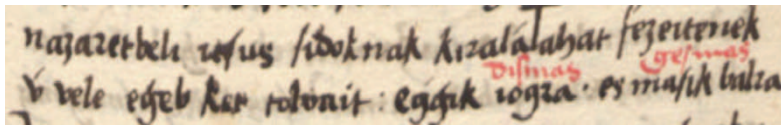 nazaretbeli iesus sidoknak kiralalahat fezeitenek
disinas gesmas
v̇ vele eǵeb ket tolvait : eǵǵik iogra · es masik balra